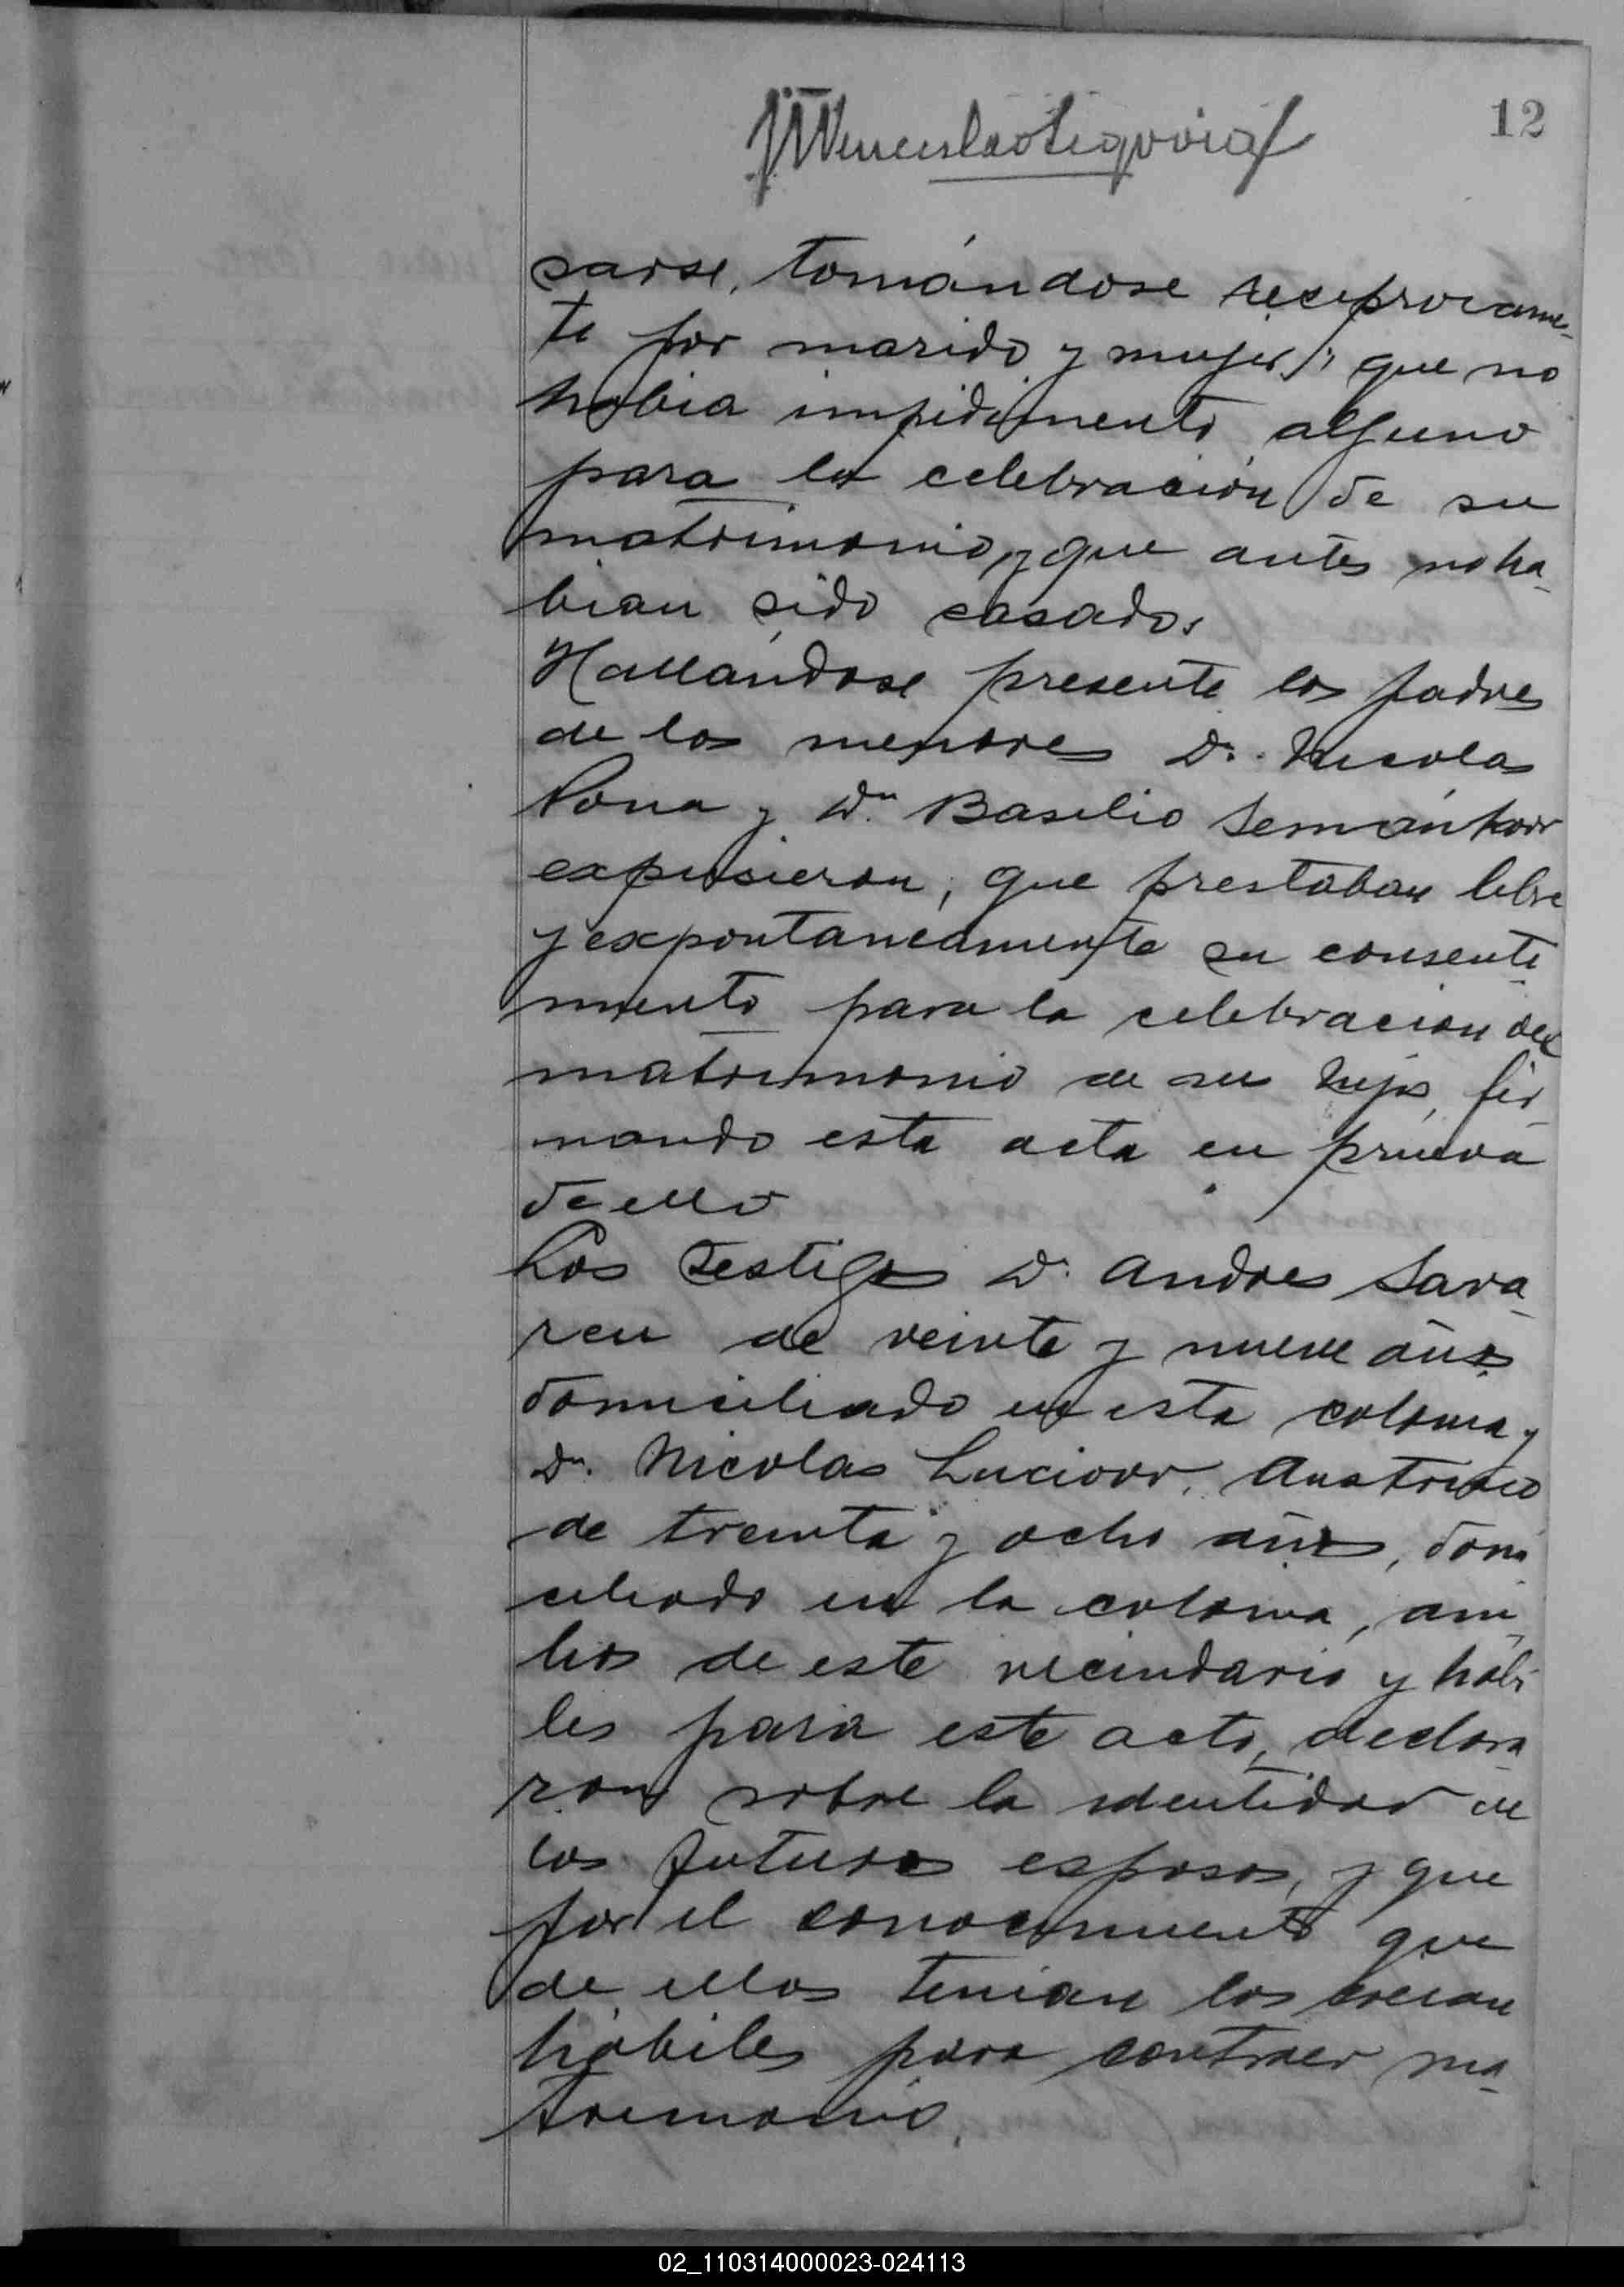 12
sarse, tomándose reciprocame-
te por marido y mujer, que no
habia impedimento alguno
para la celebración de su
matrimonio, y que antes no ha-
bian sido casados
Hallándose presente los padres
de los menores Dn. Nicolas
y Dn. Basilio
expusieron, que prestaban libre
y expontaneamente su consenti-
miento para la celebración del
matrimonio de su hijos, fir-
mando esta acta en prueva
de ello
Los testigos D. Andres Sava-
ren de veinte y nueve años
domiciliado en esta colonia y
Dn. Nicolas Lucioor, Austriaco
de treinta y ocho años, domi
ciliado en la colonia, am-
bos de este vecindario y habi
les para este acto, declara
ron sobre la identidad de
los futuros esposos, y que
por el conocimiento que
de ellos tenian los creian
hábiles para contraer ma-
trimonio.
02_110314000023-024113